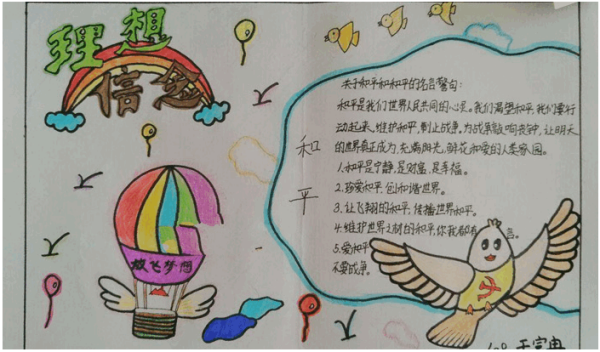 理想
信念
和
平
关于和平和和平的名言警句:
和平是我们世界人民共同的心灵。我们渴望和平,我们要行
动起来,维护和平,制止战争,为战争敲响丧钟,让明天
的世界真正成为,充满阳光,鲜花和爱的人类家园。
1.和平是宁静,是财富,是幸福。
2.珍爱和平,创和谐世界。
3.让飞翔的和平,传播世界和平。
4.维护世界之材的和平,你我都有
5.爱和平
不要战争。
放飞梦